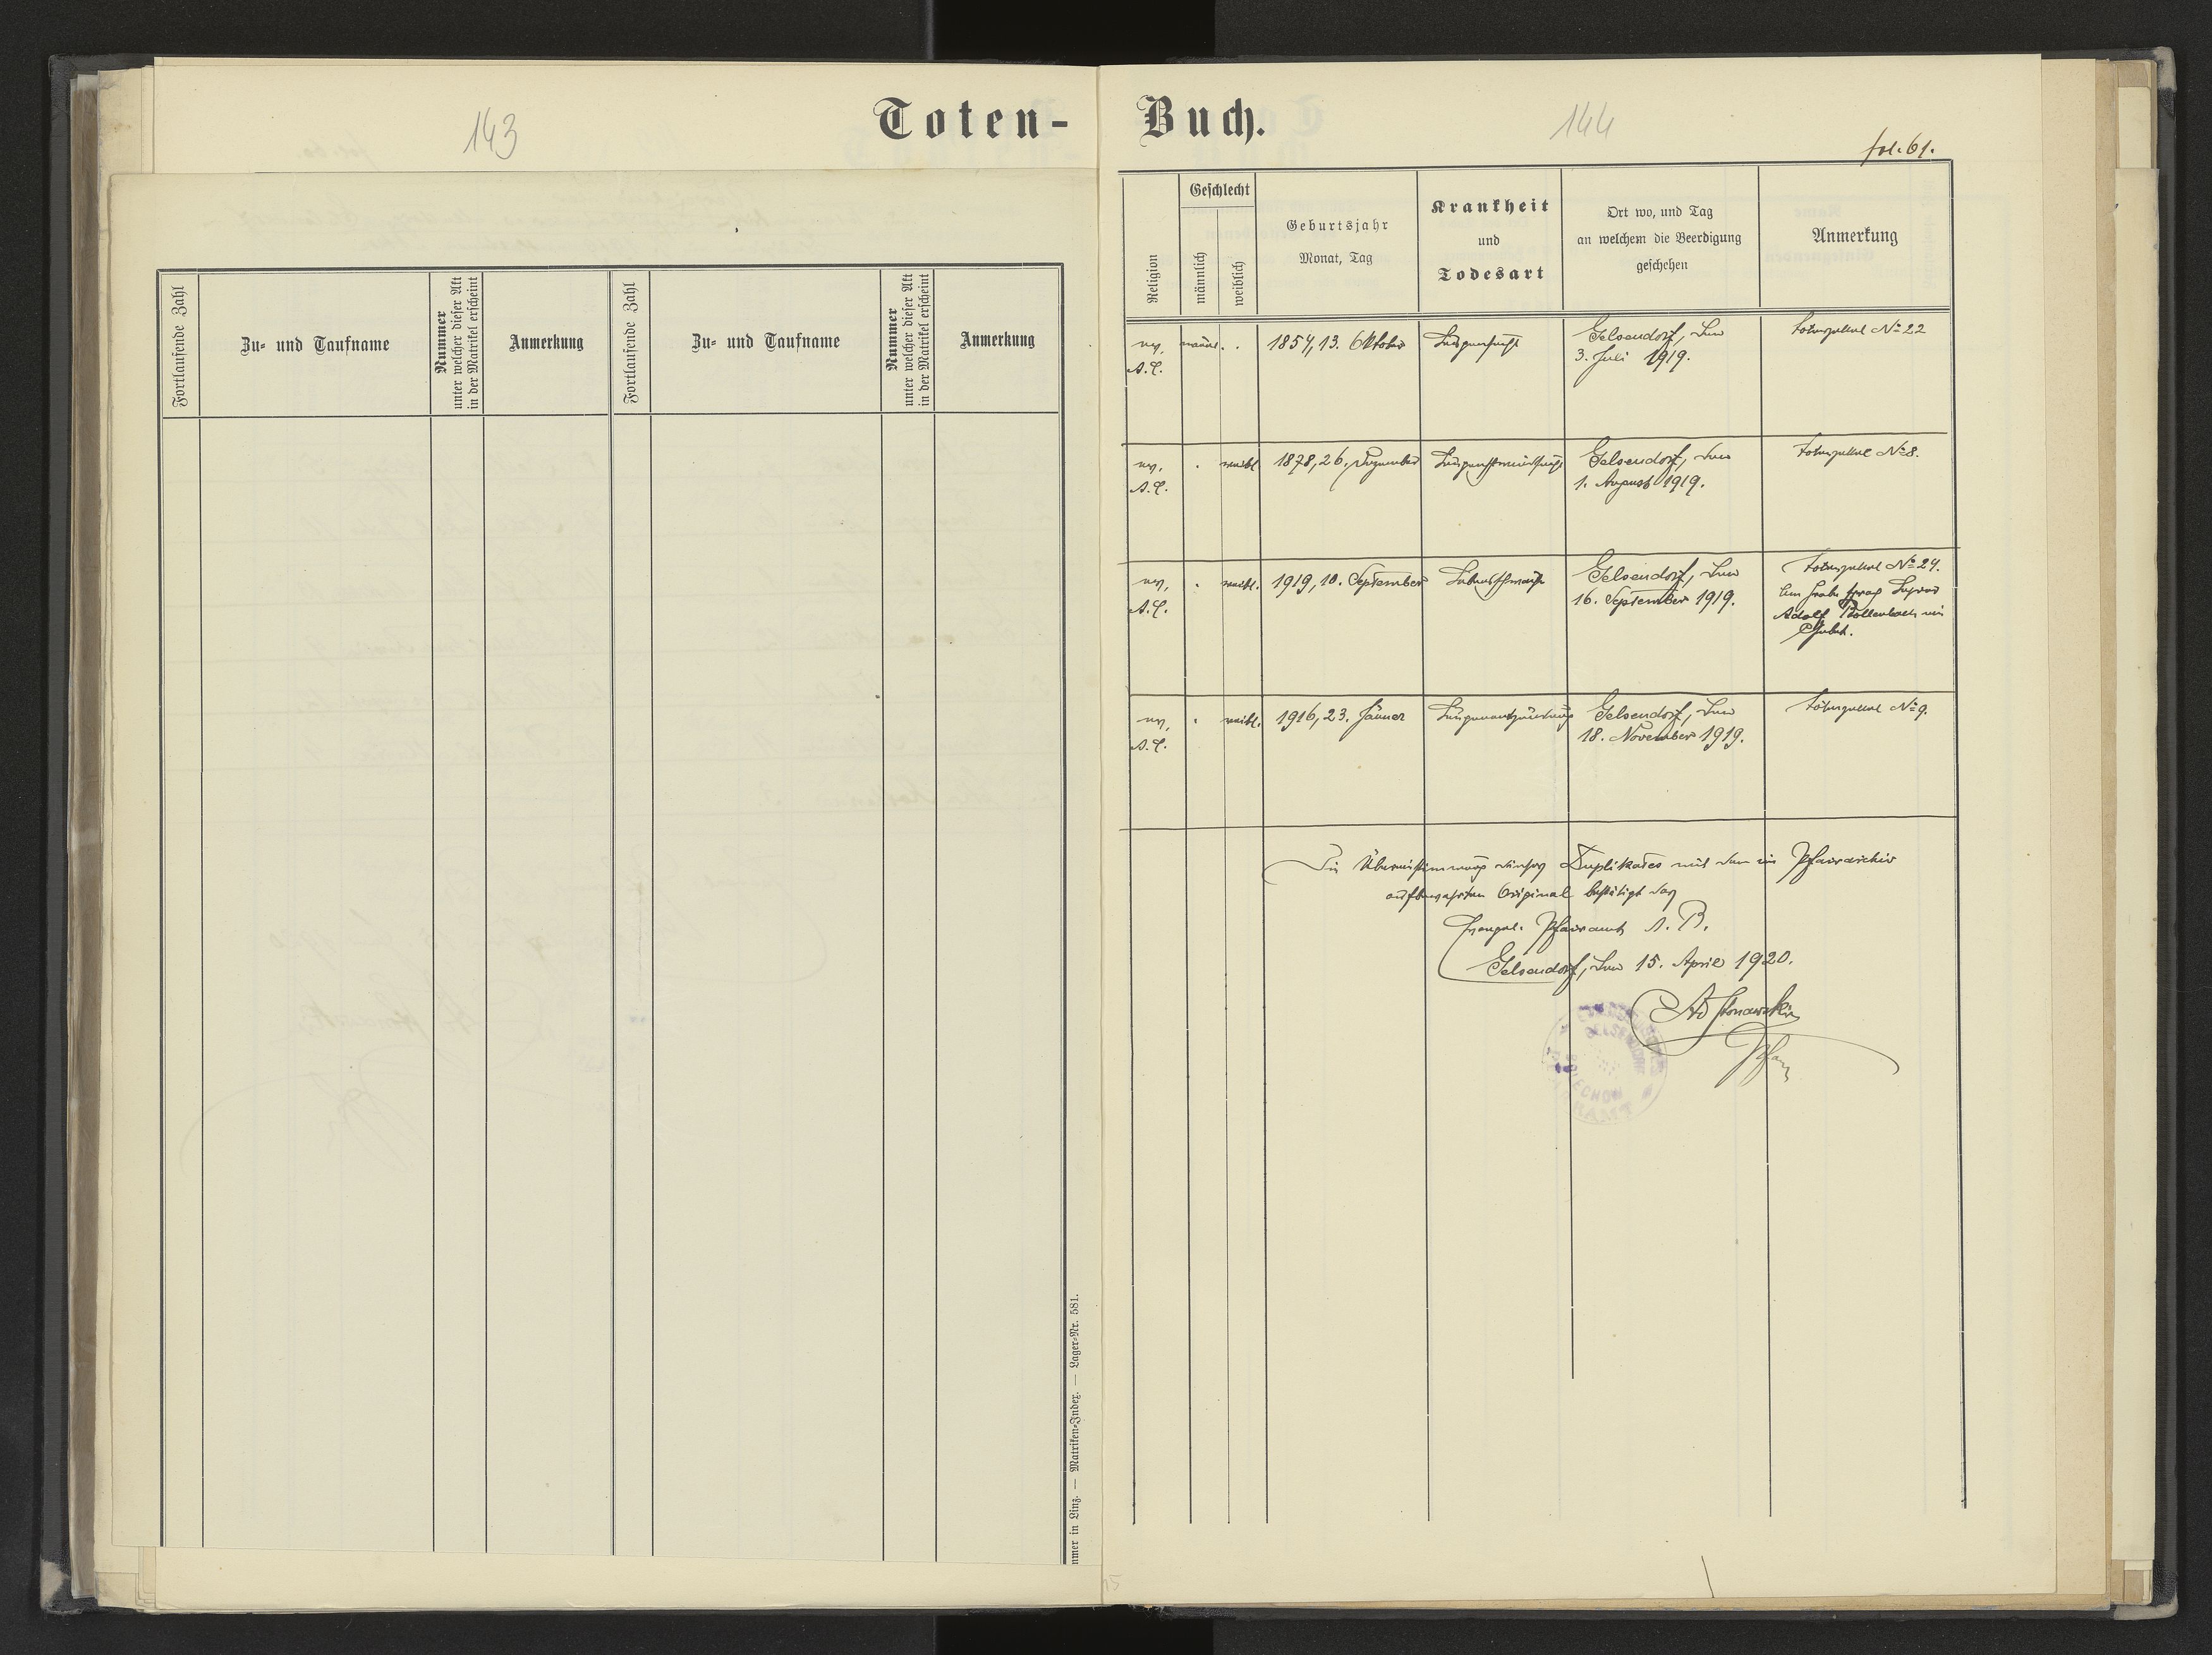 143
Toten-
Fortlaufende Zahl
Zu- und Taufname
Nummer
unter welcher dieser Akt
in der Matrikel erscheint
Anmerkung
Fortlaufende Zahl
Zu- und Taufname
Nummer
unter welcher dieser Akt
in der Matrikel erscheint
Anmerkung
mmer in Linz. — Matriken-Index. — Lager-Nr. 581.
Buch.
144
fol. 61.
Religion
Geschlecht
männlich
weiblich
Geburtsjahr
Monat, Tag
Krankheit
und
Todesart
Ort wo, und Tag
an welchem die Beerdigung
geschehen
Anmerkung
ev.
A.C.
männl.
1854, 13. Oktober
Lungensucht
Gelsendorf, den
3. Juli 1919.
Totenzettel № 22
ev.
A.C.
weibl.
1878, 26. Dezember
Lungenschwindsucht
Gelsendorf, den
1. August 1919.
Totenzettel № 8.
ev.
A.C.
weibl.
1919, 10. September
Lebensschwäche
Gelsendorf, den
16. September 1919.
Totenzettel № 24.
Am Grabe sprach
Adolf ein
Gebet.
ev.
A.C.
weibl.
1916, 23. Jänner
Lungenentzündung
Gelsendorf, den
18. November 1919.
Totenzettel № 9.
Die Übereinstimmung dieses Duplikates mit dem im Pfarrarchiv
aufbewahrten Original bestätigt das
Evangel. Pfarramt A. B.
Gelsendorf, den 15. April 1920.
Pfarrer
GELSENDORF